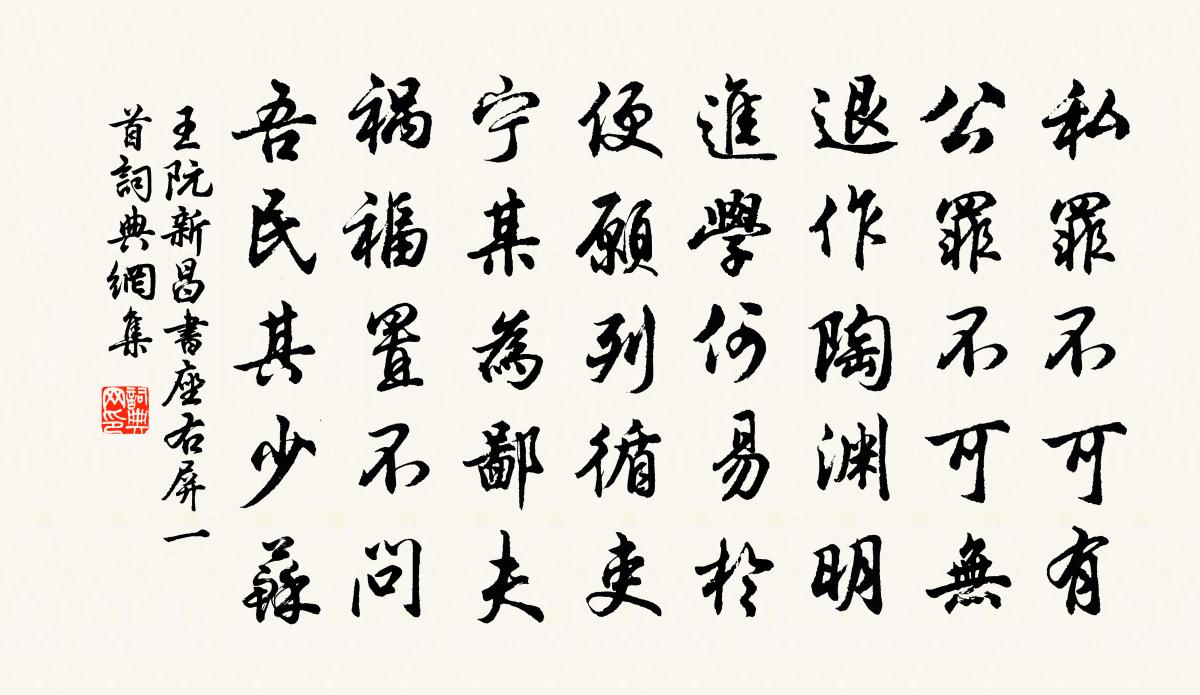 私罪不可有
公罪不可無
退作陶渊明
進學何易於
便願列循吏
宁某為鄙夫
禍福置不問
吾民其少蘇
王阮新昌書座右屏一
首詞典網集
詞典网印